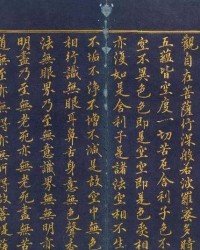 觀自在菩薩行深般若波羅蜜多時
五蘊皆空度一切苦厄舍利子色不
空不異色色即是空空即是色受想
亦復如是舍利子是諸法空相不生
不垢不淨不增不減是故空中無色
想行識無眼耳鼻舌身意無色聲
法無眼界乃至無意識界無無明
明盡乃至無老死亦無老死盡
道無智亦無得以無所得故菩提